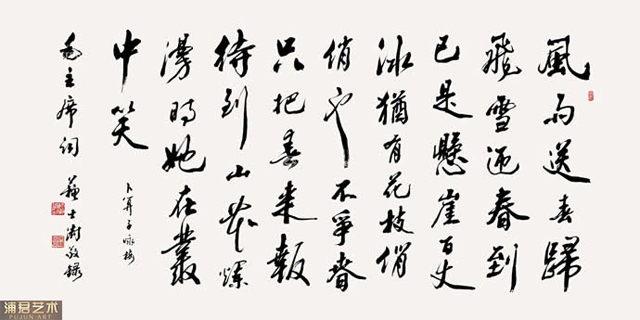 風雨送春歸
飛雪迎春到
已是懸崖百丈
冰猶有花枝俏
俏也不爭春
只把春來報
待到山花爛
漫時她在叢
中笑
卜算子詠梅
毛主席詞 蘇士澍敬錄
浦君艺术
PUJUN ART